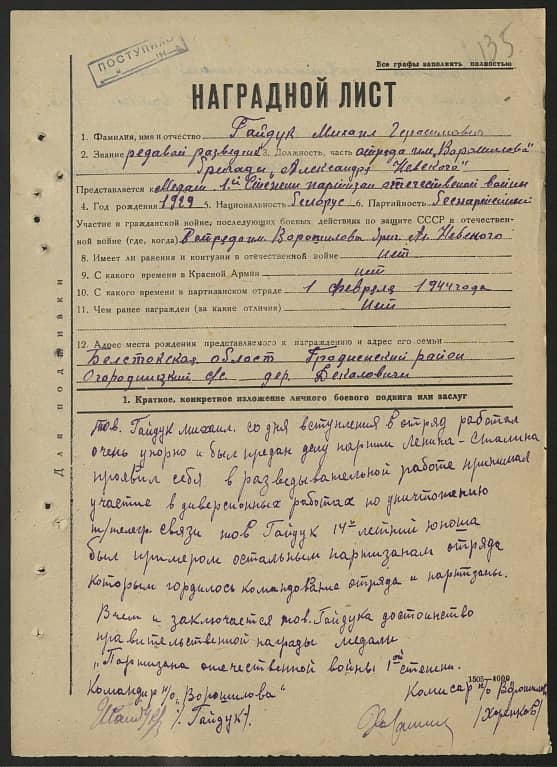 ПОСТУПИЛО
135
Все графы заполнять полностью
НАГРАДНОЙ ЛИСТ
1. Фамилия, имя и отчество Гайдук Михаил Герасимович
2. Звание редавой разведчик 3. Должность, часть отряда им. Ворошилова
бригады „Александра Невского"
Представляется к Медали 1-ой Степени партизан отечественой войны
4. Год рождения 1929 5. Национальность белорус 6. Партийность беспартийный
Участие в гражданской войне, последующих боевых действиях по защите СССР и отечествен-
ной войне (где, когда) В отряде им. Ворошилова бриг. Ал. Невского
8. Имеет ли ранения и контузии в отечественной войне нет
9. С какого времени в Красной Армии нет
10. С какого времени в партизанском отряде 1 февраля 1944 года
11. Чем ранее награжден (за какие отличия) Нет
12. Адрес места рождения представляемого к награждению и адрес его семьи
Белстокская област Гродненский район
Огородницкий с/с дер. Бекаловичи
Для подшивки
1. Краткое, конкретное изложение личного боевого подвига или заслуг
тов. Гайдук Михаил. со дня вступления в отряд работал
очень упорно и был предан делу партии Ленина-Сталина
проявил себя в разведывательной работе принимал
участие в диверсионных работах по уничтожению
т/телегр. связи тов Гайдук 14-летний юноша
был примером остальным партизанам отряда
которым гордилось командование отряда и партизаны.
В чем и заключается тов. Гайдука достоинство
правительственной награды медали
„Партизана отечественной войны 1ой степени.
1505-4000
Командир п/о „Ворошилова"
/Гайдук/.
Комисар п/о Ворошилов
/Харенков/